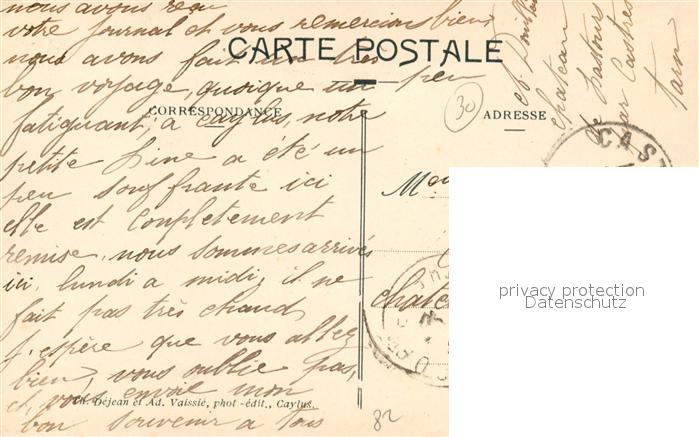 nous avons reçu
votre journal et vous remercions bien
nous avons fait un très
CARTE POSTALE
bon voyage, quoique un peu
CORRESPONDANCE
ADRESSE
30
fatiguant, a Caylus, notre
petite Line a été un
peu souffrante ici
elle est complètement
remise. nous sommes arrivés
ici lundi a midi, il ne
fait pas très chaud
J'espère que vous allez
bien, vous oublie pas,
et vous envoie mon
Ch. Dejean et Ad. Vaissié, phot-édit., Caylus.
bon souvenir a tous
82
chateau
de Lastours
par Castres
Tarn
CAST
Chate
privacy protection
Datenschutz